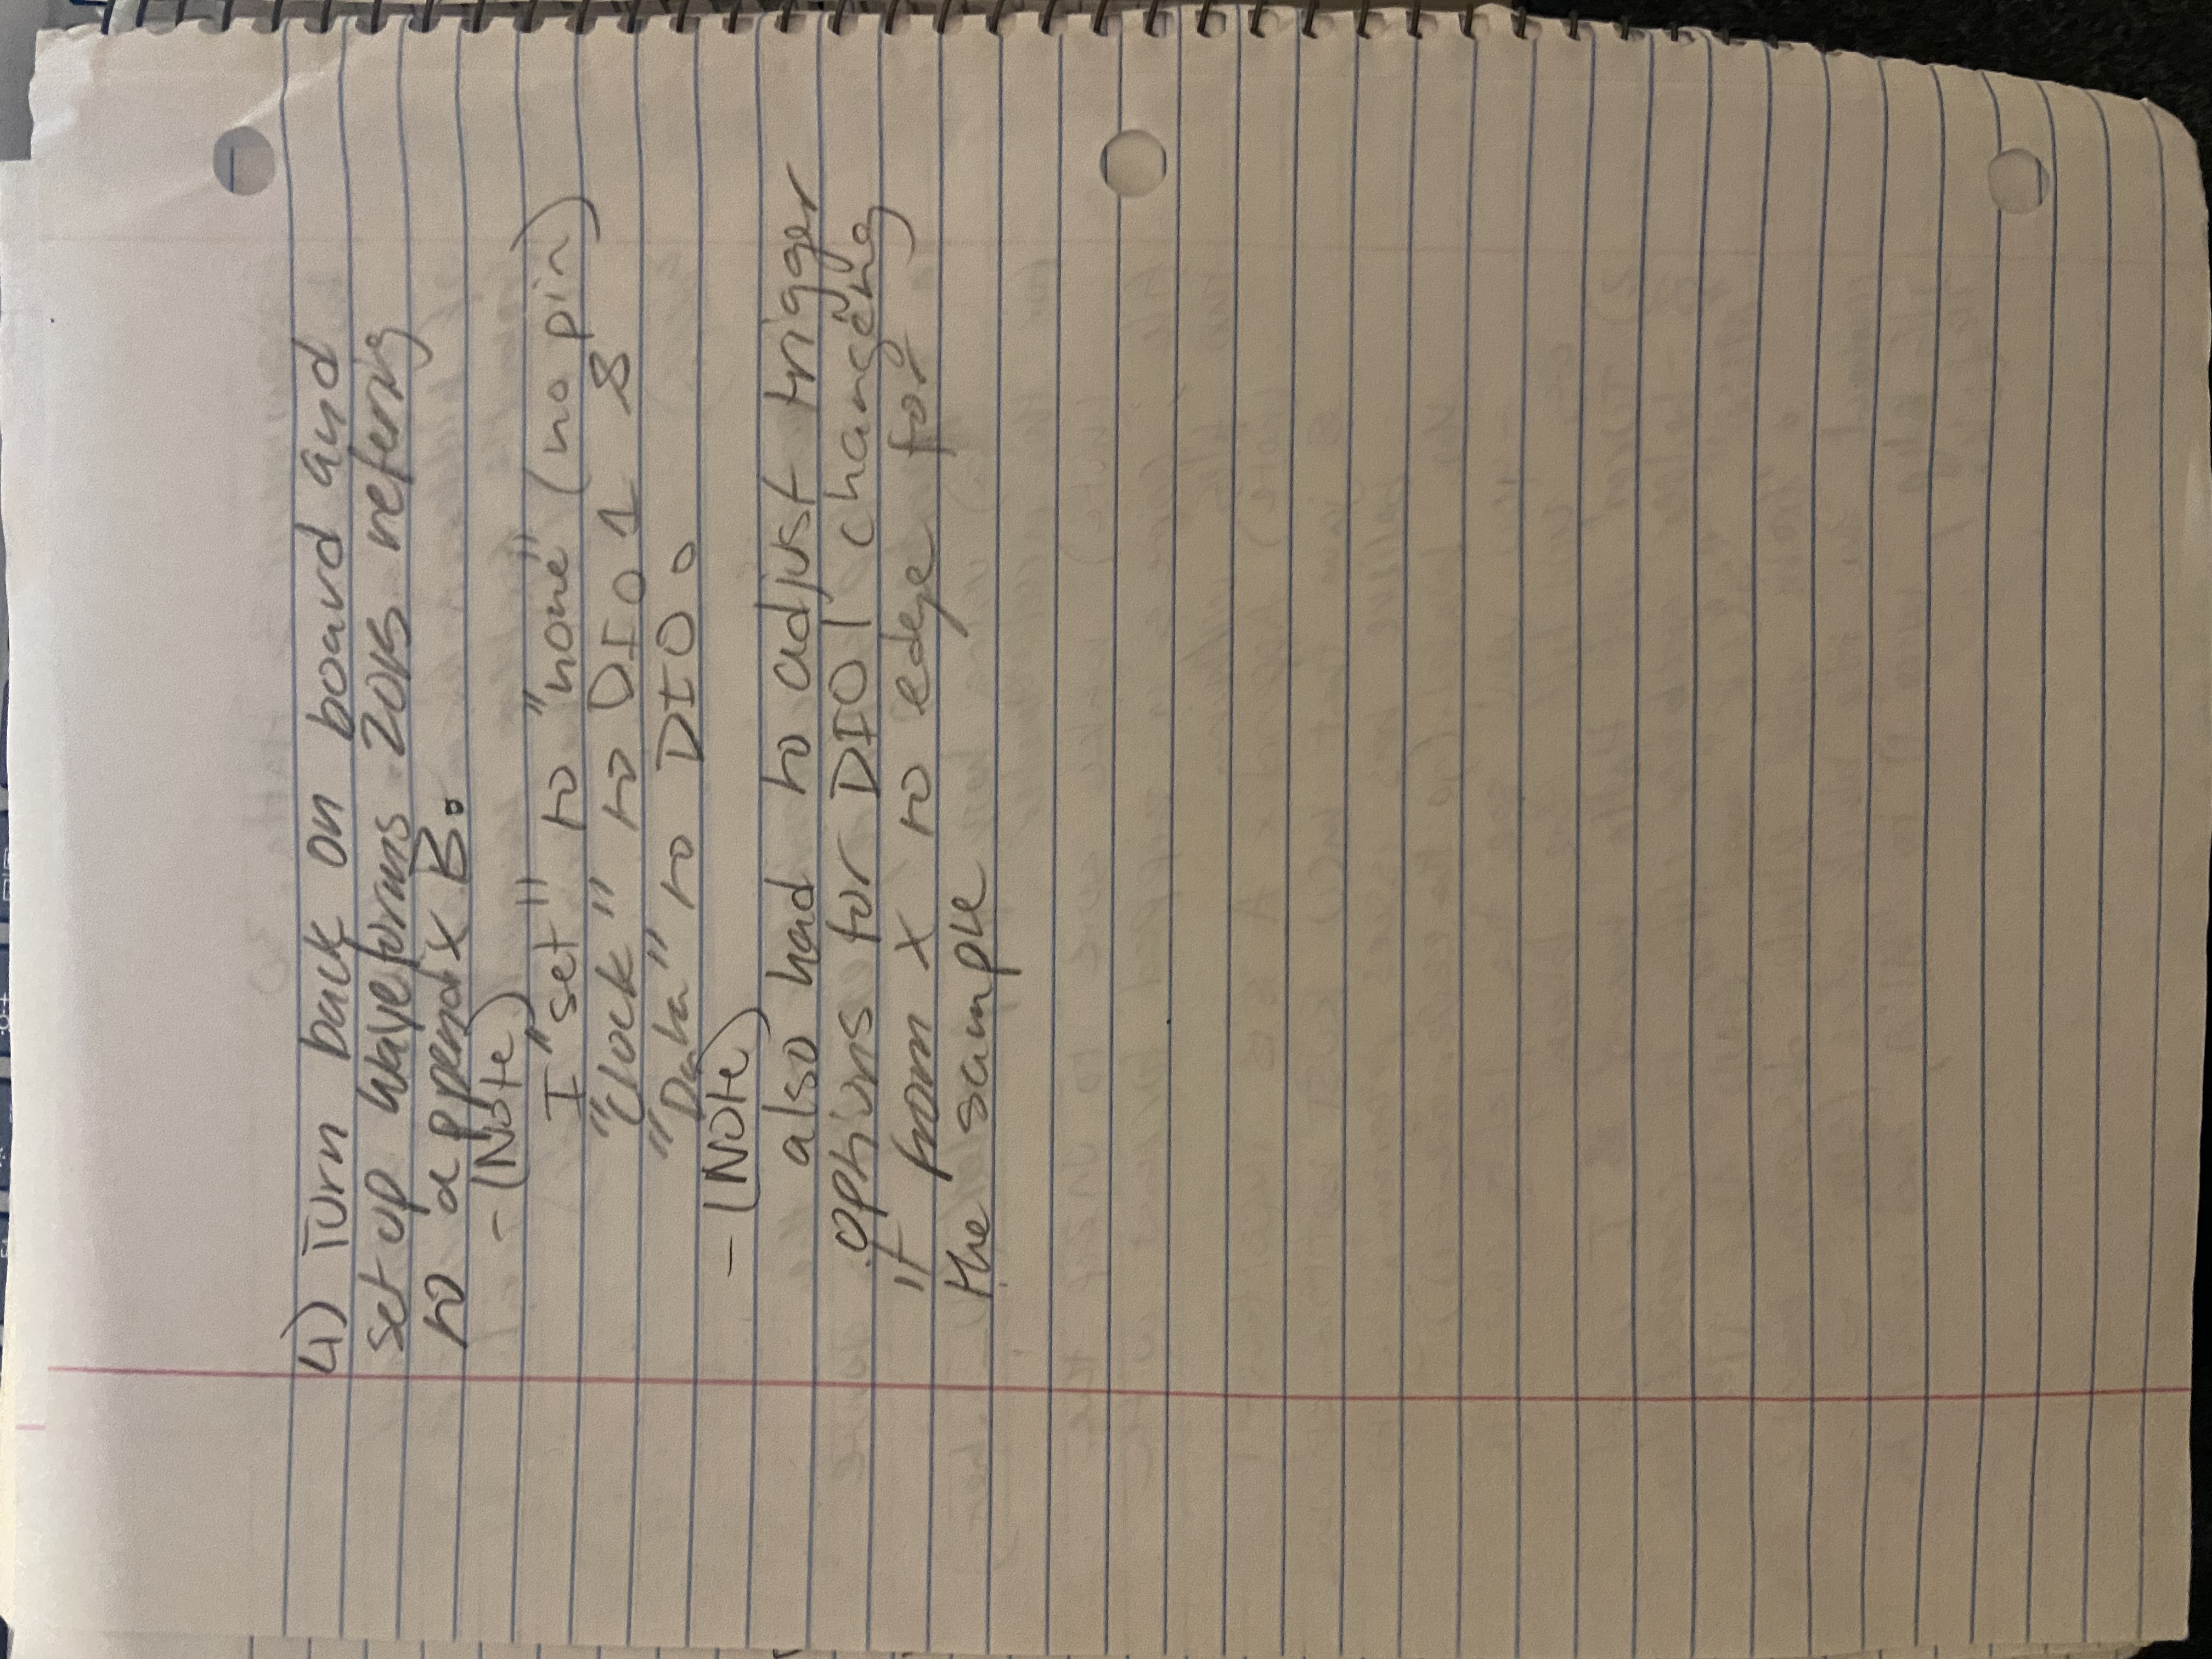 4) Turn back on board and
set up Waveforms 2015 refering
to appendix B.
- (Note)
I "set" to "none" (no pin)
"Clock" to DIO 1 &
"Data" to DIO 0
- (Note)
also had to adjust trigger
options for DIO 1 changeing
it from X to edge for
the sample